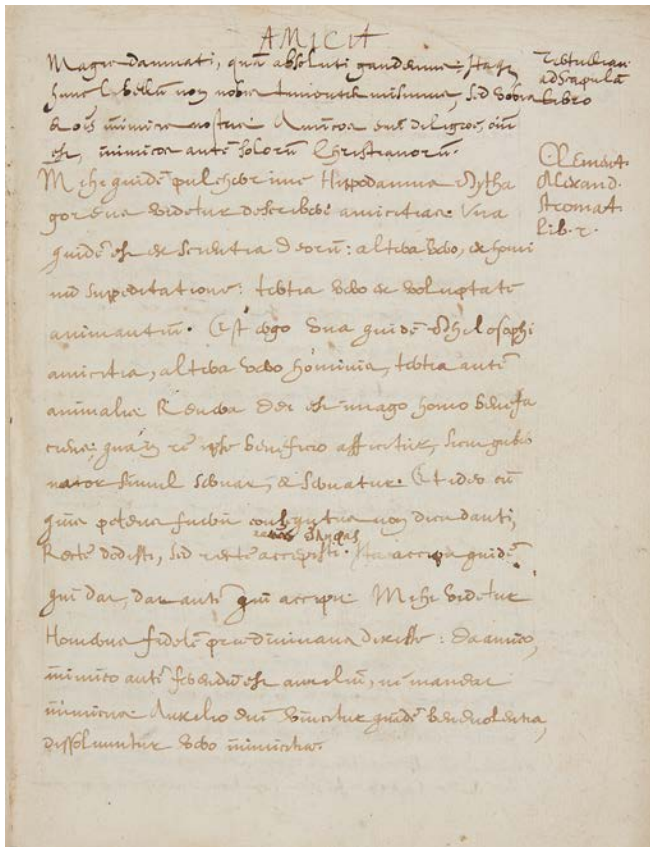 AMICIT
Magis damnati, quā absoluti gaudemus: Itaq;
hunc libellū non nobis timentes misimus, sed vobis
& oīs inimicis nostris Amicos enī diligere, oīū
est, inimicos autē solorū Christianorū.
Tertullian.
ad Scapulā
libro
Mihi quidē pulchrè imus Hippodamus Pytha
goreus videtur describere amicitias. Una
quidē est ex scientia Deorū: altera vero, ex homi
nū suppeditatione: tertia vero ex voluptate
animantiū. Est ergo una quidē Philosophi
amicitia, altera vero hominis, tertia autē
animalis. Revera Dei est imago homo benefa
ciens: qua in re ipse beneficio afficitur, sicut guber
nator simul servat, & servatur. Et ideo cū
quis petens fuerit consequutus non dicit danti,
Recte dedisti, sed recte accepisti. Ita accipit quidē
qui dat, dat autē qui accipit. Mihi videtur
Homerus fidelē prædivinans dixisse: Da amico,
inimico autē ferendū est auxiliū, ne maneat
inimicus Auxilio enī vincitur quidē benevolentia,
dissolvuntur vero inimicitiæ.
Clement.
Alexand.
stromat.
lib. 2.